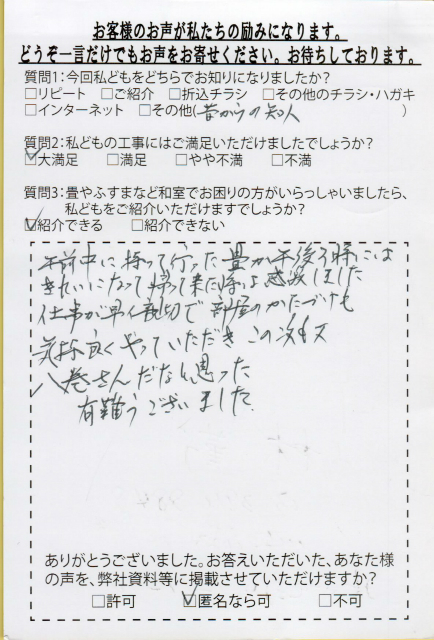 お客様のお声が私たちの励みになります。
どうぞ一言だけでもお声をお寄せください。お待ちしております。
質問1:今回私どもをどちらでお知りになりましたか?
□リピート □ご紹介 □折込チラシ □その他のチラシ・ハガキ
□インターネット □その他(昔からの知人)
質問2:私どもの工事にはご満足いただけましたでしょうか?
☑大満足 □満足 □やや不満 □不満
質問3:畳やふすまなど和室でお困りの方がいらっしゃいましたら、
私どもをご紹介いただけますでしょうか?
☑紹介できる □紹介できない
午前中に持って行った畳が午後3時には
きれいになって帰って来た時は感激しました
仕事が早く親切で部屋のかたづけも
気持良くやっていただきこの次も又
八巻さんだなと思った
有難うございました
ありがとうございました。お答えいただいた、あなた様
の声を、弊社資料等に掲載させていただけますか?
□許可 ☑匿名なら可 □不可